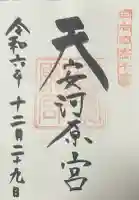 天安河原宮
令和六年 十二月二十九日